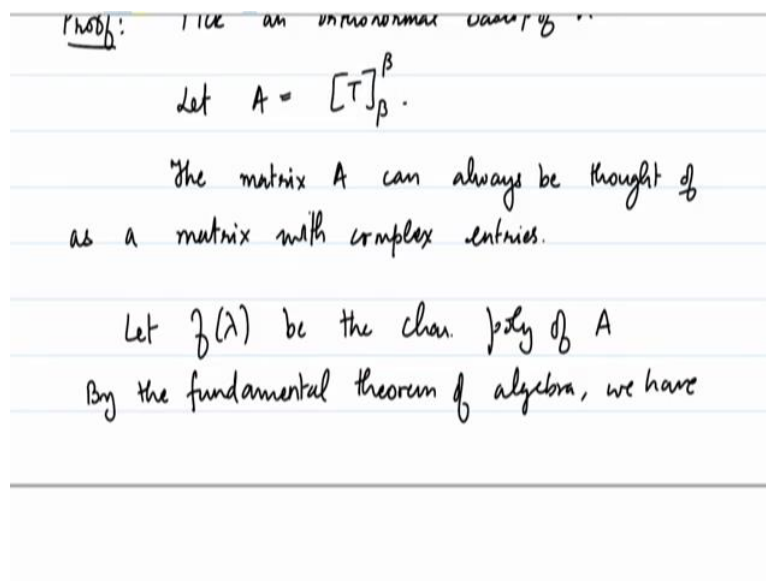 Proof: Pick an orthonormal basis β of
Let A = [T]_β^β.
The matrix A can always be thought of
as a matrix with complex entries.
Let f(λ) be the char. poly of A
By the fundamental theorem of algebra, we have